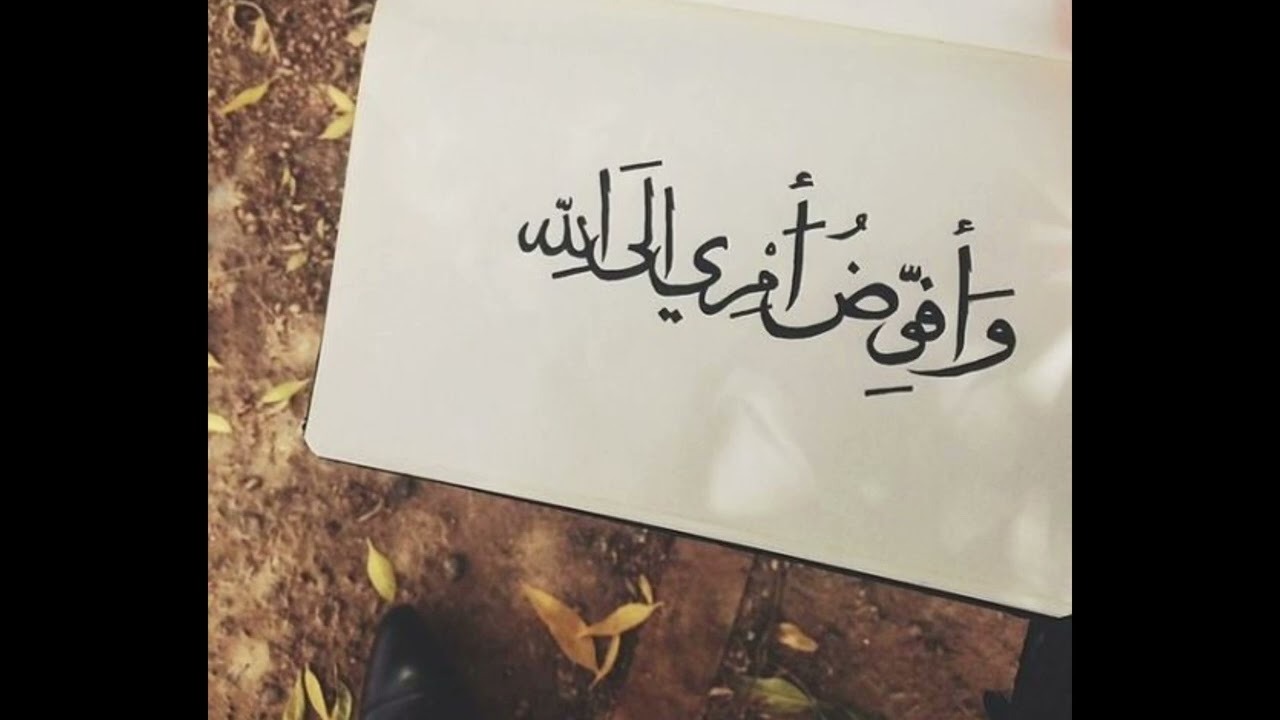 وَأفوِّضُ أَمْرِي الَى اللّهِ